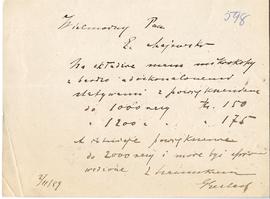 598
Wielmożny Pan
E. Majewski
Na składzie mam mikroskopy
z bardzo udoskonalonemi
statywami z powiększeniem
do 1000 razy Rs. 150
" 1200 " " " 175
A
powiększenie
do 2000 razy i może być
z szacunkiem